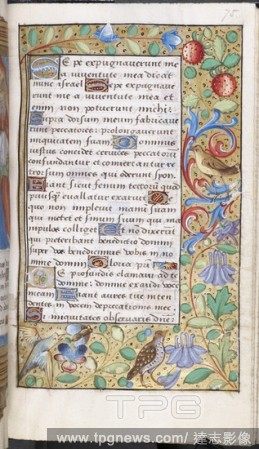 75
Sepe expugnaverunt me
a iuventute mea dicat
nunc israel Sepe expugnave
runt me a iuventute mea et
enim non potuerunt michi
Supra dorsum meum fabricave
runt peccatores: prolongaverunt
iniquitatem suam Dominus
iustus concidet cervices peccatorum
confundantur et convertantur re
trorsum omnes qui oderunt syon
Fiant sicut fenum tectorum quod
priusquam evellatur exaruit
quo non implevit manum suam
qui metet et sinum suum qui ma
nipulos colliget Et non dixerunt
qui preteribant benedictio domini
super vos benedicimus vobis in no
mine domini Gloria
De profundis clamavi ad te
domine: domine exaudi vocem
meam Fiant aures tue inten
dentes in vocem deprecationis mee
Si iniquitates observaveris dne:
TPG
www.tpgnews.com / 達志影像